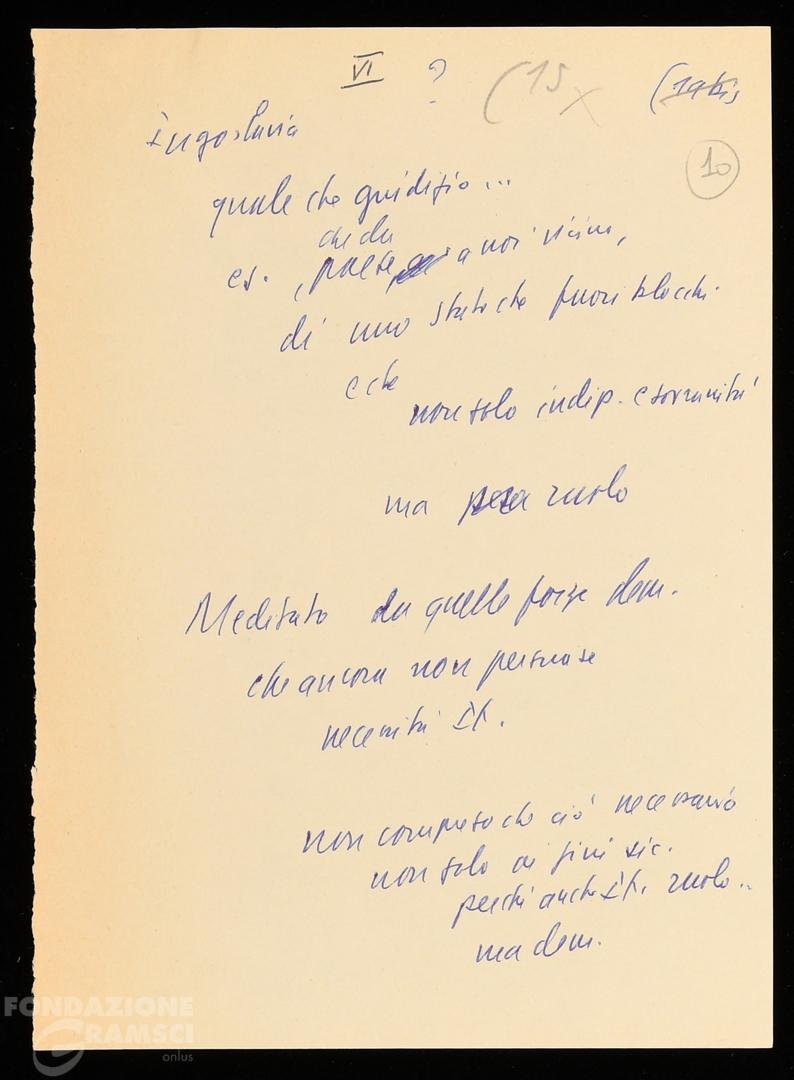 VI ? (15 x (14bis
10
Iugoslavia
quale che giudizio...
che da
es. , paese, a noi vicini,
di uno stato che fuori blocchi.
e che
non solo indip. e sovranità
ma ruolo
Meditato da quelle forze dem.
che ancora non persuase
necessità It.
non compreso che ciò necessario
non solo ai fini sic.
perché anche It. ruolo..
ma dem.
FONDAZIONE
GRAMSCI
onlus